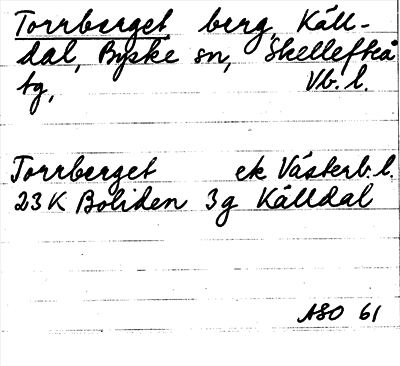 Torrberget berg, Käll-
dal, Byske sn, Skellefteå
tg, Vb. l.
Torrberget ek Västerb. l.
23 K Boliden 3g Källdal
ASO 61